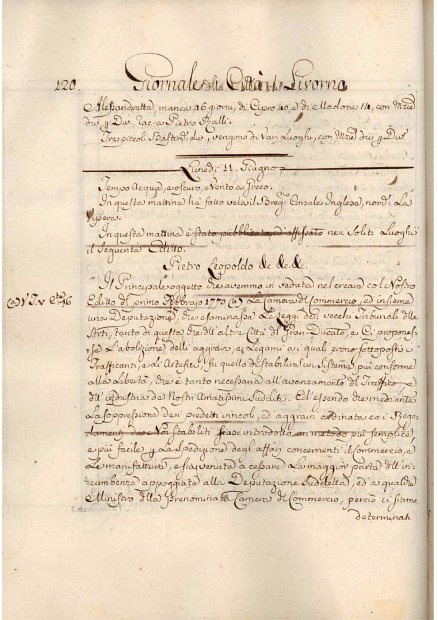 120. Giornale della Città di Livorno
Alessandretta, manca 46 giorni, di Cipro 40, e di Madone 14, con
a Pietro Ralli.
Tre piccoli Bastardi, vengono di varj Luoghi, con
Lunedì 11. Giugno
Tempo Acqua, e oscuro, e Vento a Greco.
In questa mattina hà fatto vela il Corsale Inglese, nom. La
Vipera.
In questa mattina è stato pubblicato, ed affissato nei Soliti Luoghi
il seguente Editto.
Pietro Leopoldo &c. &c. &c.
Il Principale oggetto che avemmo in veduta nel creare col Nostro
Editto del primo Febbrajo 1770 (a) La Camera di Commercio, ed insieme
una Deputazione, che esaminasse le Leggi dei vecchi Tribunali delle
Arti, tanto di questa che dell'altre Città del Gran Ducato, e Ci propones-
se L'abolizione delli aggravi, e Legami ai quali erono sottoposti i
Trafficanti, e di Artefici, fu quello di stabilire un Sistema più conforme
alla Libertà, che è tanto necessaria all'avanzamento del Traffico, e
dell'industria dei Nostri Amatissimi Sudditi. Ed essendo che mediante
La soppressione dei predetti vincoli, ed aggravi ordinata coi Rego-
lamenti da Noi stabiliti, si sia introdotto un metodo più semplice,
e più facile per La spedizione degli affari concernenti il Commercio, e
Le manifatture, e sia venuta a cessare La maggior parte dell'in-
cumbenza appoggiate alla Deputazione suddetta, ed a qualche
Ministro della Prenominata Camera di Commercio, perciò ci siamo
determinati